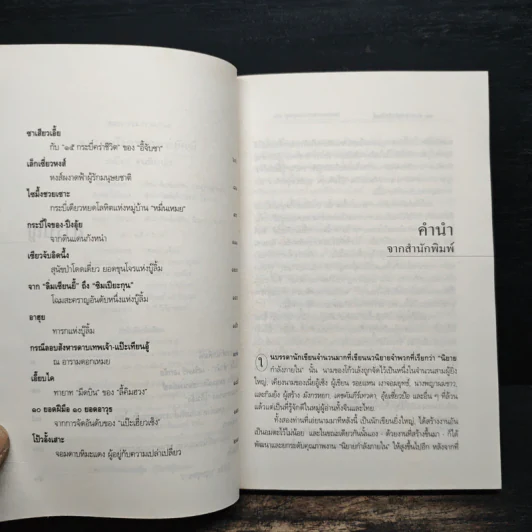 ซาเสียวเอี้ย
กับ "๑๕ กระบี่คร่าชีวิต" ของ "อี้จับซา"
เล็กเซี่ยวหงส์
หงส์ผงาดฟ้าผู้รักมนุษยชาติ
ไซมึ้งชวยเซาะ
กระบี่เดียวหยดโลหิตแห่งหมู่บ้าน "หมื่นเหมย"
กระบี่ใจของ-ปึงอุ้ย
จากดินแดนกังหนำ
เซียวจับอิดนึ้ง
สุนัขป่าโดดเดี่ยว ยอดขุนโจรแห่งบู๊ลิ้ม
จาก "ลิ่มเซียนยี้" ถึง "ซิมเปียะกุน"
โฉมสะคราญอันดับหนึ่งแห่งบู๊ลิ้ม
อาฮุย
ทารกแห่งบู๊ลิ้ม
กรณีลอบสังหารดาบเทพเจ้า-แป๊ะเทียนอู้
ณ อารามดอกเหมย
เอี๊ยบไค
ทายาท "มีดบิน" ของ "ลี้คิมฮวง"
๑๐ ยอดฝีมือ ๑๐ ยอดอาวุธ
จากการจัดอันดับของ "แป๊ะเฮี่ยวเซ็ง"
โป้วอั้งเสาะ
จอมดาบทิฆมบแดง ผู้อยู่กับความเปล่าเปลี่ยว
คำนำ
จากสำนักพิมพ์
ใ นบรรดานักเขียนจำนวนมากที่เขียนนวนิยายจำพวกที่เรียกว่า "นิยาย
กำลังภายใน" นั้น นามของโก้วเล้งถูกจัดไว้เป็นหนึ่งในจำนวนสามผู้ยิ่ง
ใหญ่, เคียงนามของเนี่ยอู้เซ็ง ผู้เขียน รอยแหน เงาจอมยุทธ์, นางพญาผมขาว,
และกิมย้ง ผู้สร้าง มังกรหยก, เดชคัมภีร์เทวดา, อุ้ยเซี่ยวป้อ และอื่น ๆ ที่ล้วน
แล้วแต่เป็นที่รู้จักดีในหมู่ผู้อ่านทั้งจีนและไทย
ทั้งสองท่านที่เอ่ยนามมาทีหลังนี้ เป็นนักเขียนยิ่งใหญ่, ได้สร้างงานอัน
เป็นอมตะไว้ไม่น้อย และในขณะเดียวกันนั้นเอง - ด้วยงานที่สร้างขึ้นมา - ก็ได้
พัฒนาและยกระดับคุณภาพงาน "นิยายกำลังภายใน" ให้สูงขึ้นไปอีก หลังจากที่